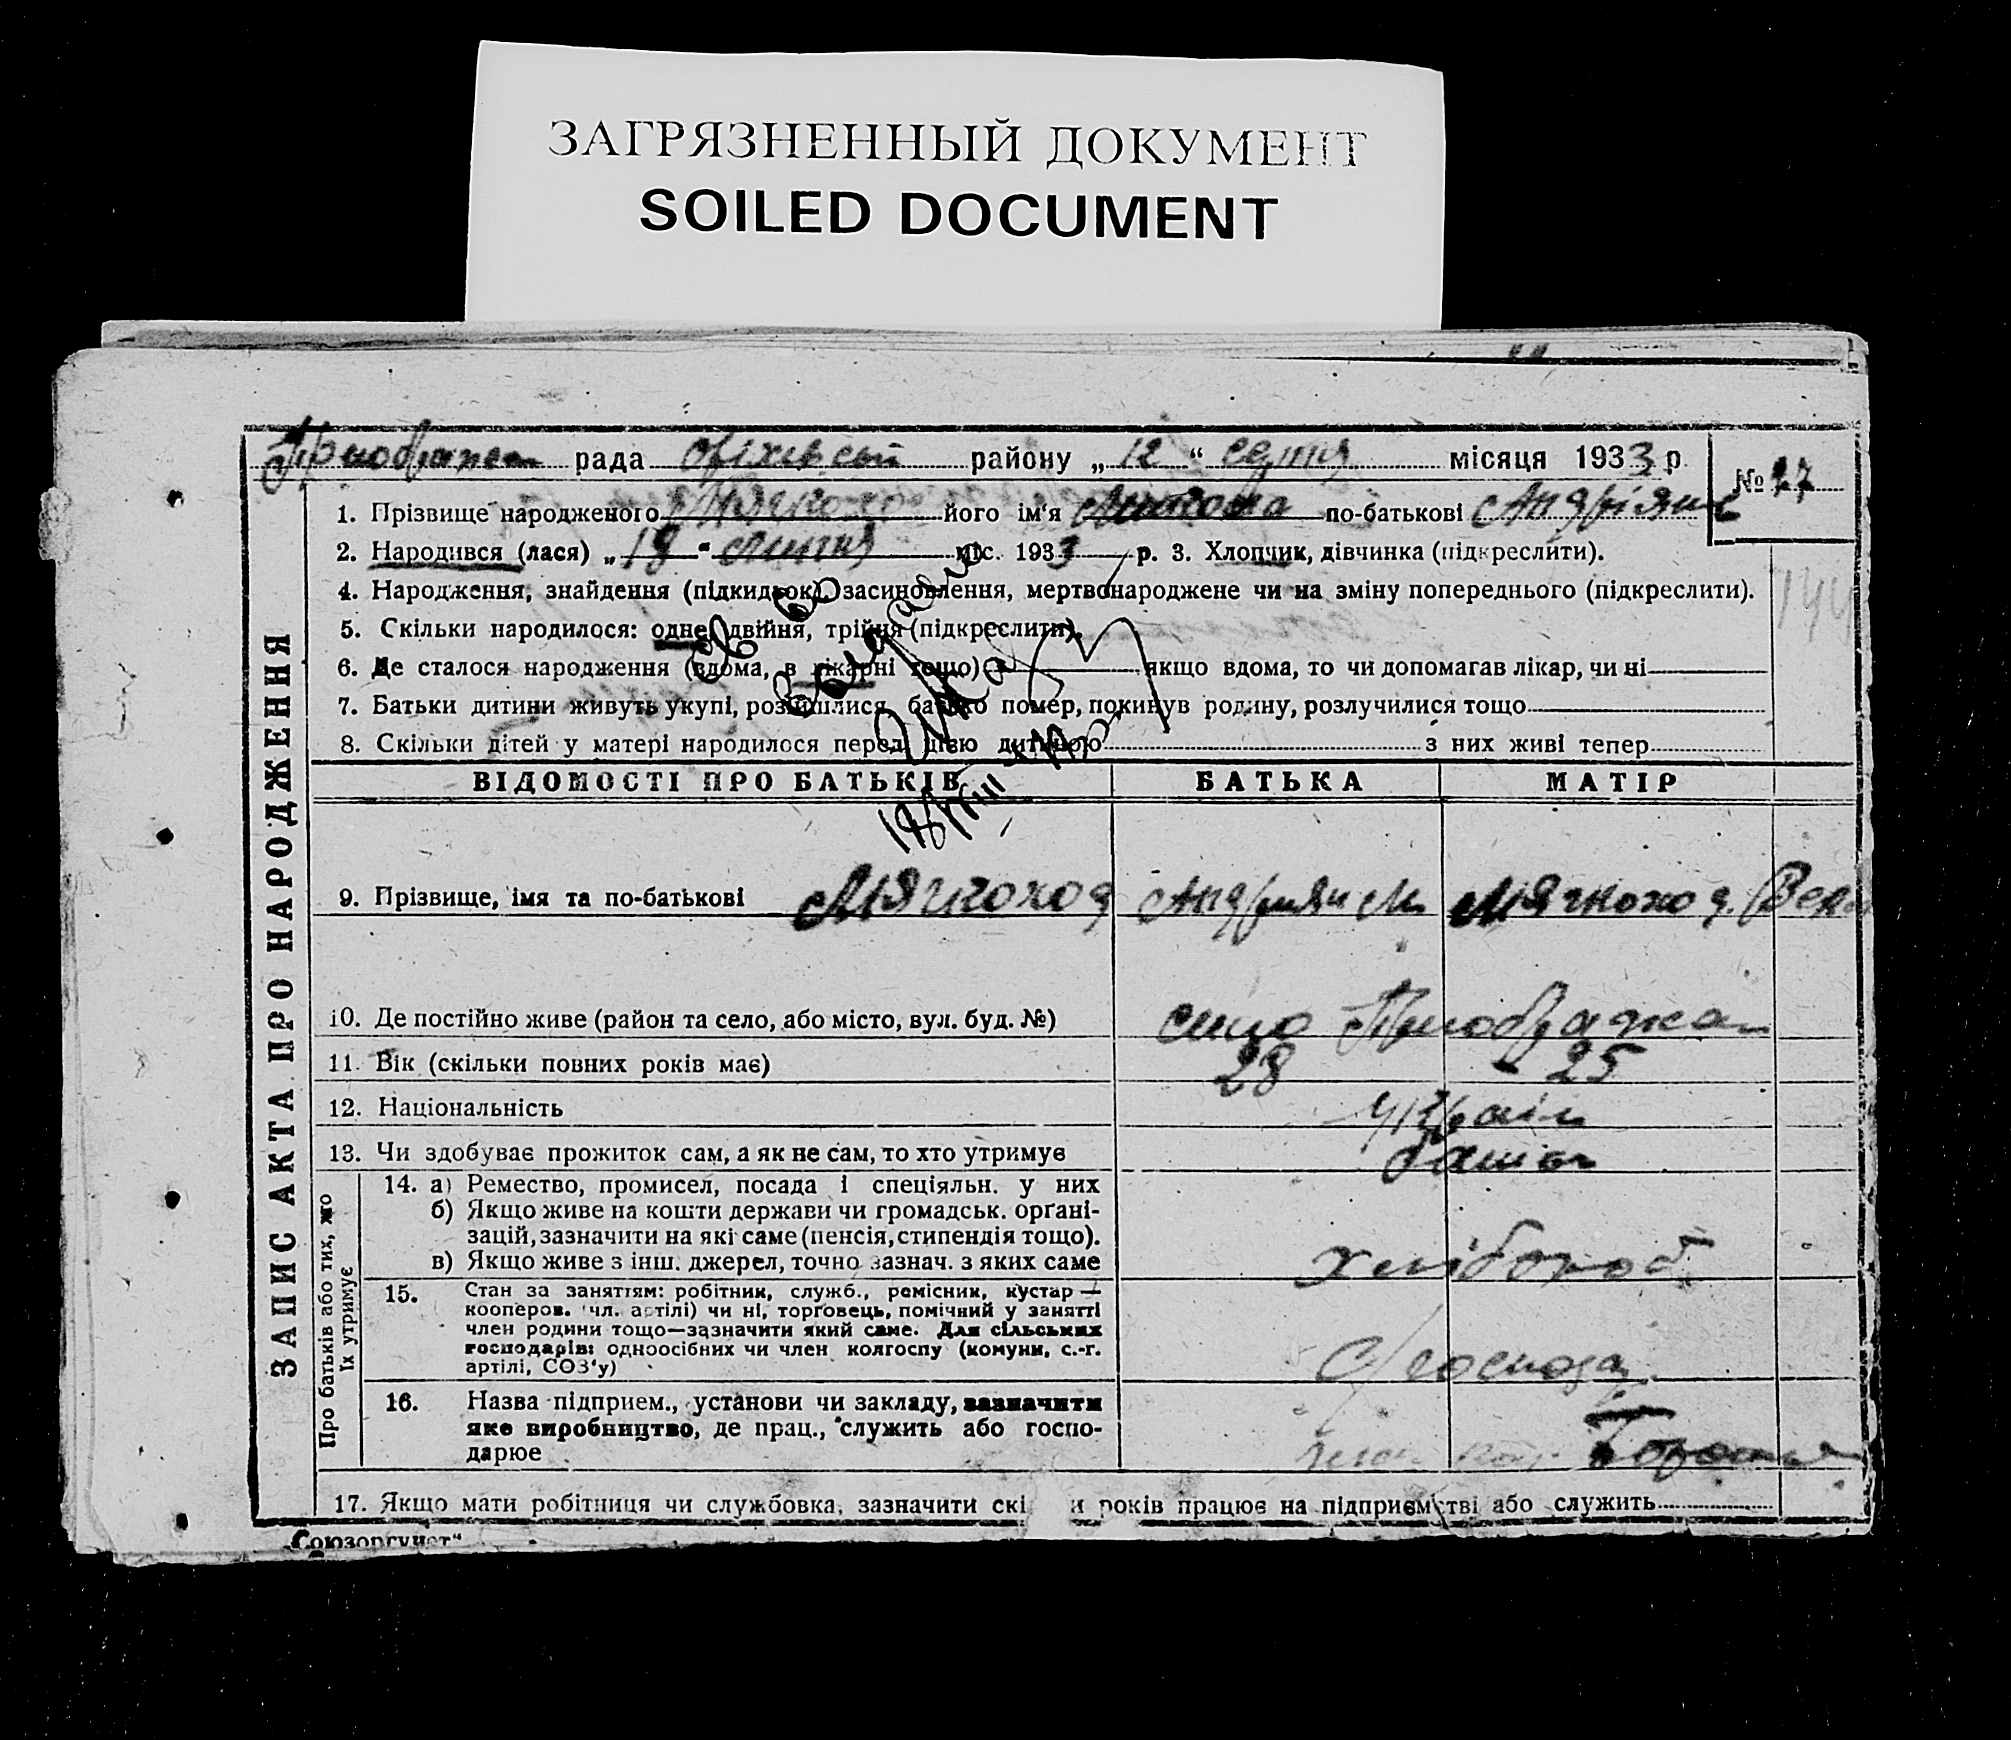 ЗАГРЯЗНЕННЫЙ ДОКУМЕНТ
SOILED DOCUMENT
рада Оріхівськ району „ 12 “ серпня місяця 1933 р. № 27
1. Прізвище народженого його ім'я по-батькові
2. Народився (лася) „ 18 “ липня міс. 1933 р. 3. Хлопчик, дівчинка (підкреслити).
4. Народження, знайдення (підкидьок), засиновлення, мертвонароджене чи на зміну попереднього (підкреслити).
5. Скільки народилося: одне, двійня, трійня (підкреслити).
6. Де сталося народження (вдома, в лікарні тощо) якщо вдома, то чи допомагав лікар, чи ні
7. Батьки дитини живуть укупі, розійшлися, батько помер, покинув родину, розлучилися тощо
8. Скільки дітей у матері народилося перед цією дитиною з них живі тепер
ЗАПИС АКТА ПРО НАРОДЖЕННЯ
ВІДОМОСТІ ПРО БАТЬКІВ БАТЬКА МАТІР
9. Прізвище, імя та по-батькові Мягкоход Андріян М Мягкоход Вера
10. Де постійно живе (район та село, або місто, вул. буд. №) село
11. Вік (скільки повних років має) 28 25
12. Національність Україн
13. Чи здобуває прожиток сам, а як не сам, то хто утримує
Про батьків або тих, хто їх утримує
14. а) Ремество, промисел, посада і спеціяльн. у них
б) Якщо живе на кошти держави чи громадськ. органі-
зацій, зазначити на які саме (пенсія, стипендія тощо).
в) Якщо живе з інш. джерел, точно зазнач. з яких саме хлібороб
15. Стан за заняттям: робітник, служб., ремісник, кустар —
кооперов. (чл. артілі) чи ні, торговець, помічний у занятті
член родини тощо—зазначити який саме. Для сільських
господарів: одноосібних чи член колгоспу (комуни, с.-г.
артілі, СОЗ'у)
16. Назва підприєм., установи чи закладу, зазначити
яке виробництво, де прац., служить або госпо-
дарює
17. Якщо мати робітниця чи службовка, зазначити скі и років працює на підприємстві або служить
„Союзоргучет“